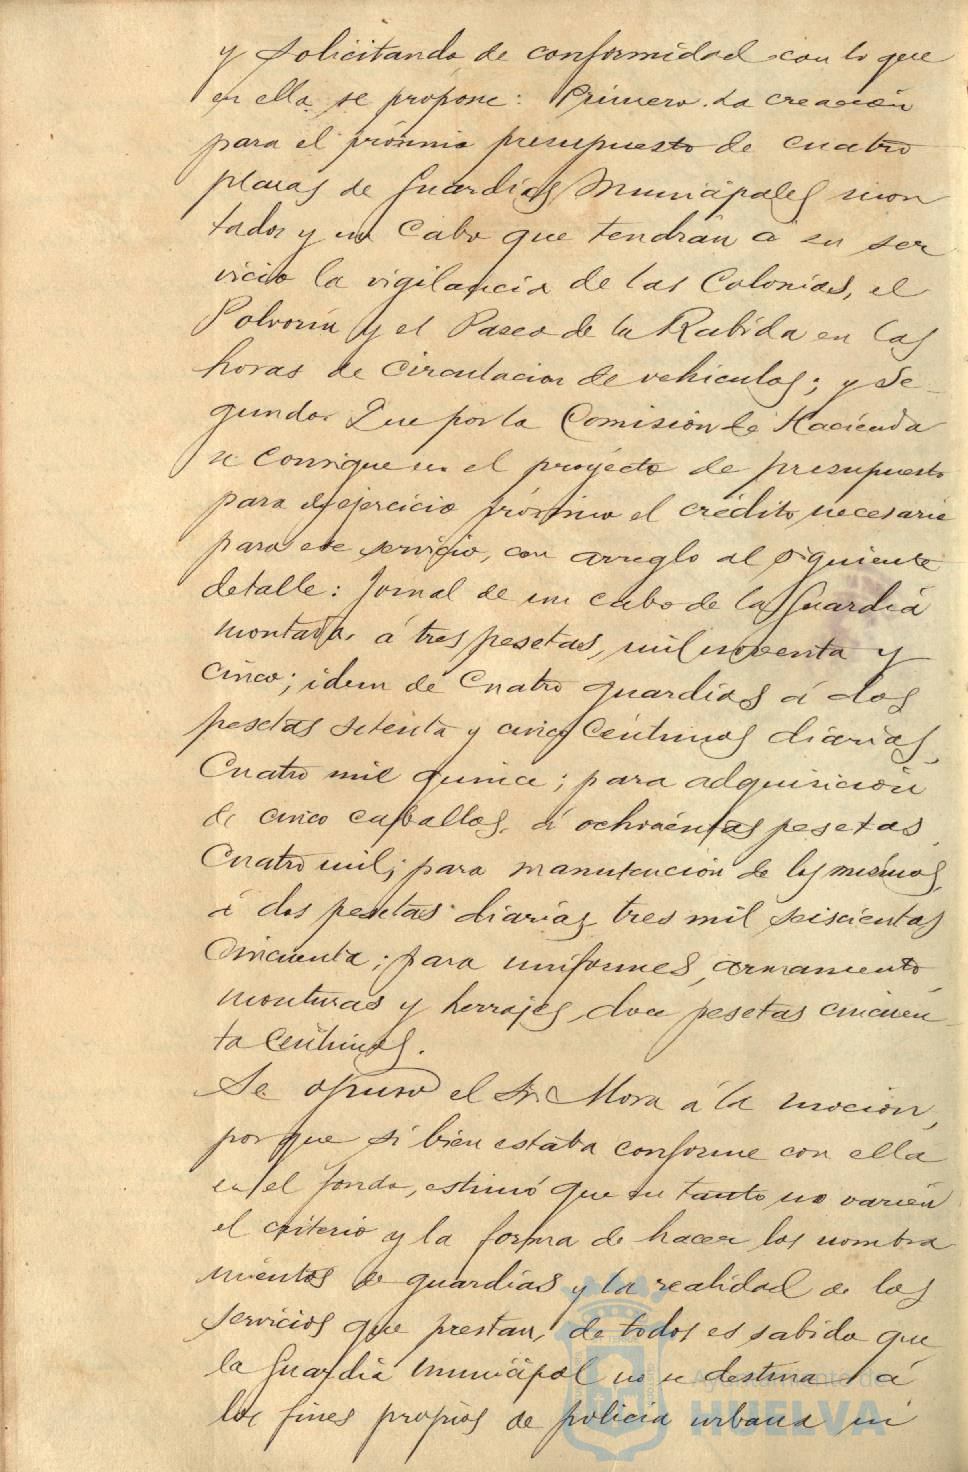 y solicitando de conformidad con lo que
en ella se propone: Primero. La creación
para el próximo presupuesto de cuatro
plazas de Guardias Municipales mon
tados y un Cabo que tendrán á su ser
vicio la vigilancia de las Colonias, el
Polvorín y el Paseo de la Rabida en las
horas de circulacion de vehiculos; y Se-
gundo. Que por la Comisión de Hacienda
se consigne en el proyecto de presupuesto
para el ejercicio próximo el crédito necesario
para ese servicio, con arreglo al siguiente
detalle: Jornal de un cabo de la Guardia
montada, á tres pesetas, mil noventa y
cinco; idem de Cuatro guardias á dos
pesetas setenta y cinco céntimos diarias,
Cuatro mil quince; para adquisición
de cinco caballos, á ochocientas pesetas,
Cuatro mil; para manutención de los mismos,
á dos pesetas diarias, tres mil seiscientas
Cincuenta; para uniformes, armamento,
monturas y herrajes, doce pesetas cincuen-
ta céntimos.
Se opuso el Sr. Mora á la moción,
porque si bien estaba conforme con ella
en el fondo, estimó que en tanto no varien
el criterio y la forma de hacer los nombra
mientos de guardias y la realidad de los
servicios que prestan, de todos es sabido que
la Guardia municipal no se destina á
los fines propios de policía urbana ni
Ayuntamiento de
HUELVA